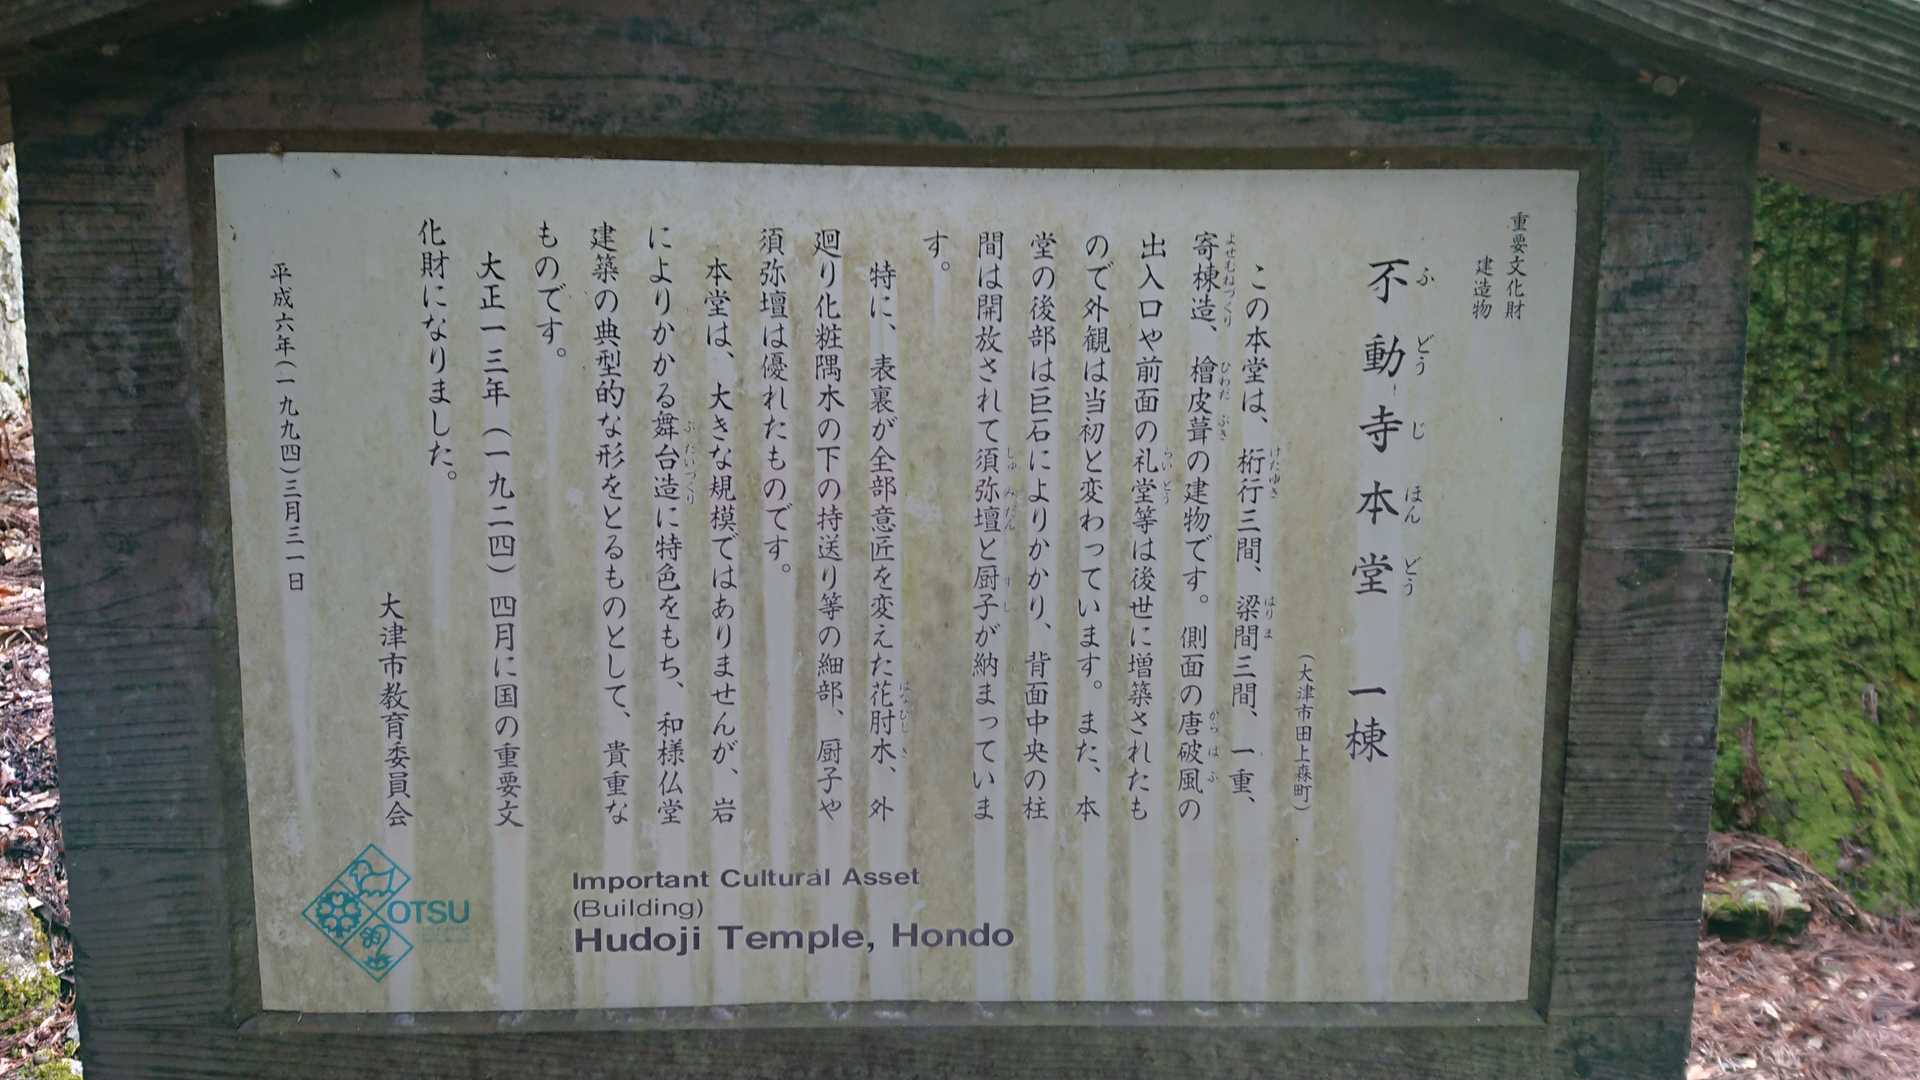 重要文化財
建造物
不動寺本堂 一棟
ふどうじほんどう
(大津市田上森町)
この本堂は、桁行三間、梁間三間、一重、
けたゆき はりま
寄棟造、檜皮葺の建物です。側面の唐破風の
よせむねづくり ひわだぶき からはふ
出入口や前面の礼堂等は後世に増築されたも
らいどう
ので外観は当初と変わっています。また、本
堂の後部は巨石によりかかり、背面中央の柱
間は開放されて須弥壇と厨子が納まっていま
しゅみだん ずし
す。
特に、表裏が全部意匠を変えた花肘木、外
はなひじき
廻り化粧隅木の下の持送り等の細部、厨子や
須弥壇は優れたものです。
本堂は、大きな規模ではありませんが、岩
によりかかる舞台造に特色をもち、和様仏堂
ぶたいづくり
建築の典型的な形をとるものとして、貴重な
ものです。
大正一三年(一九二四)四月に国の重要文
化財になりました。
大津市教育委員会
平成六年(一九九四)三月三一日
OTSU
Important Cultural Asset
(Building)
Hudoji Temple, Hondo